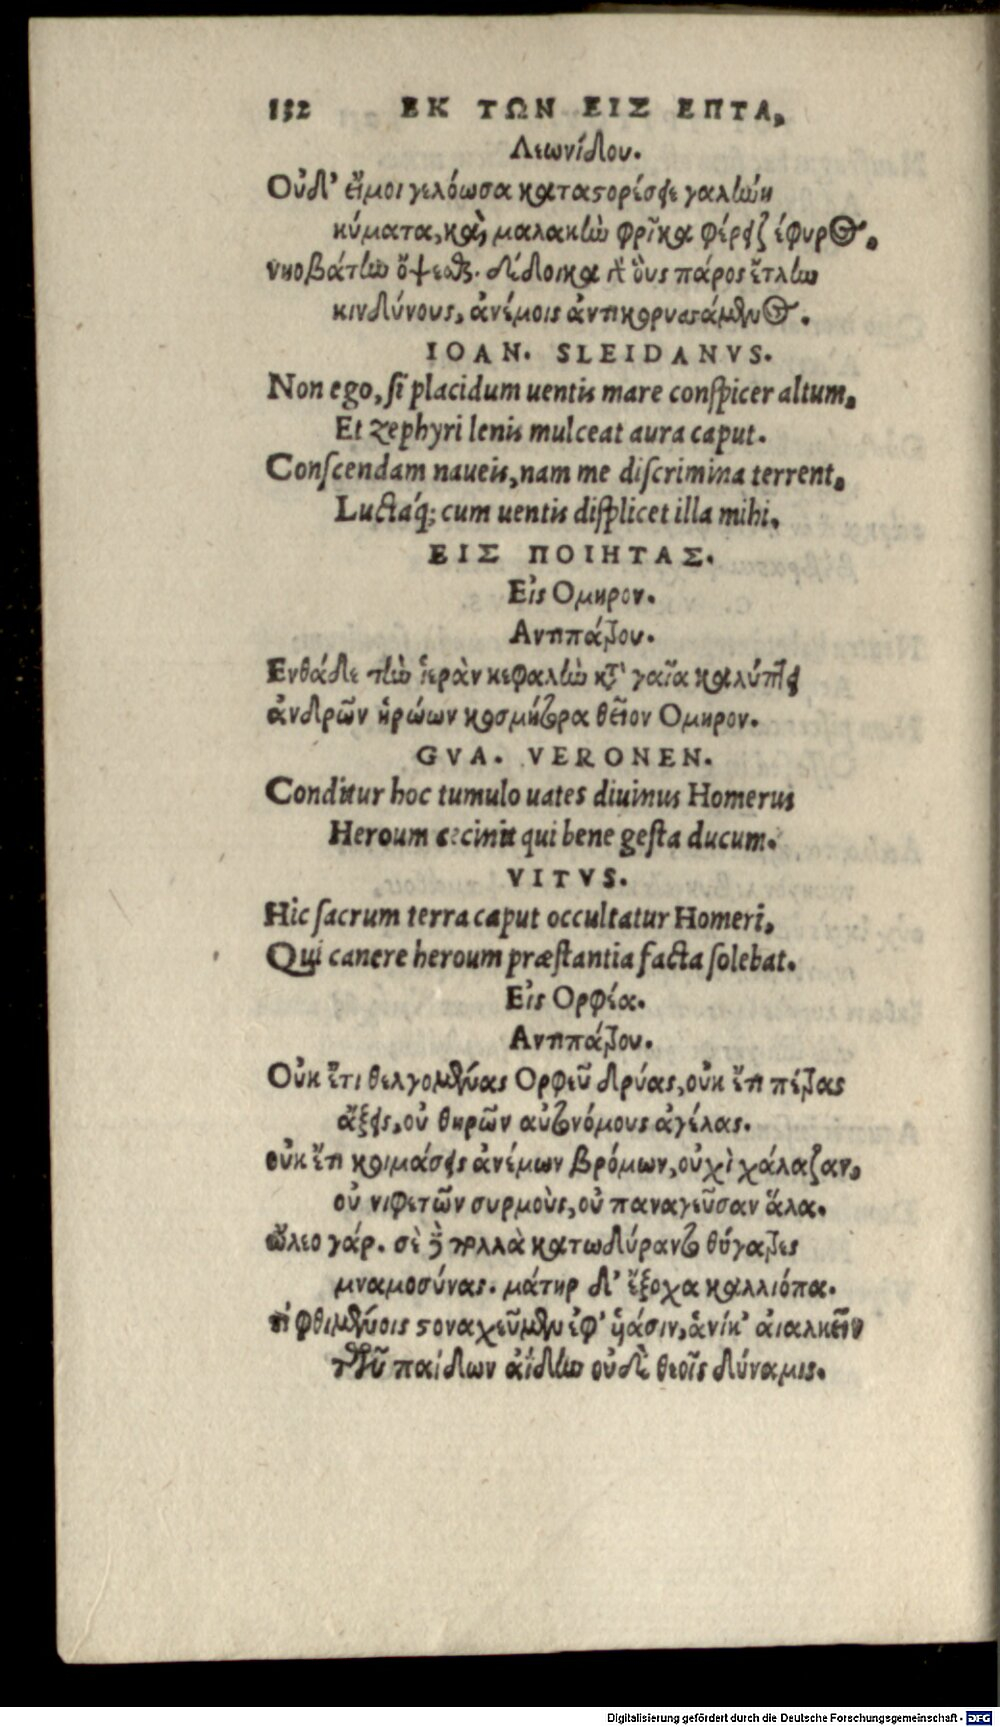 132 ΕΚ ΤΩΝ ΕΙΣ ΕΠΤΑ,
Λεωνίδου.
Οὐδ' εἴμοι γελόωσα καταστορέσειε γαλήνη
κύματα, καὶ μαλακὴν φρῖκα φέρει ζέφυρος.
νηοβάτην ὄψεσθε. δείδοικα γὰρ οὓς πάρος ἔτλην
κινδύνους, ἀνέμοις ἀντικορυσσάμενος.
IOAN. SLEIDANVS.
Non ego, si placidum uentis mare conspicer altum,
Et zephyri lenis mulceat aura caput.
Conscendam naueis, nam me discrimina terrent,
Luctáq; cum uentis displicet illa mihi.
ΕΙΣ ΠΟΙΗΤΑΣ.
Εἰς Ομηρον.
Αντιπάτρου.
Ενθάδε τὴν ἱερὰν κεφαλὴν κατὰ γαῖα καλύπτει
ἀνδρῶν ἡρώων κοσμήτορα θεῖον Ομηρον.
GVA. VERONEN.
Conditur hoc tumulo uates diuinus Homerus
Heroum cecinit qui bene gesta ducum.
VITVS.
Hic sacrum terra caput occultatur Homeri,
Qui canere heroum præstantia facta solebat.
Εἰς Ορφέα.
Αντιπάτρου.
Οὐκ ἔτι θελγομένας Ορφεῦ δρύας, οὐκ ἔτι πέτρας
ἄξεις, οὐ θηρῶν αὐτονόμους ἀγέλας.
οὐκ ἔτι κοιμάσεις ἀνέμων βρόμων, οὐχὶ χάλαζαν,
οὐ νιφετῶν συρμοὺς, οὐ παναγεῦσαν ἅλα.
ὤλεο γάρ. σὲ δὲ πολλὰ κατωδύραντο θύγατρες
μναμοσύνας. μάτηρ δ' ἔξοχα καλλιόπα.
τί φθιμένοις στοναχεῦμεν ἐφ' ὑάσιν, ἁνίκ' ἀιαλκεῖν
τῶν παίδων ἀΐδην οὐδὲ θεοῖς δύναμις.
Digitalisierung gefördert durch die Deutsche Forschungsgemeinschaft - DFG